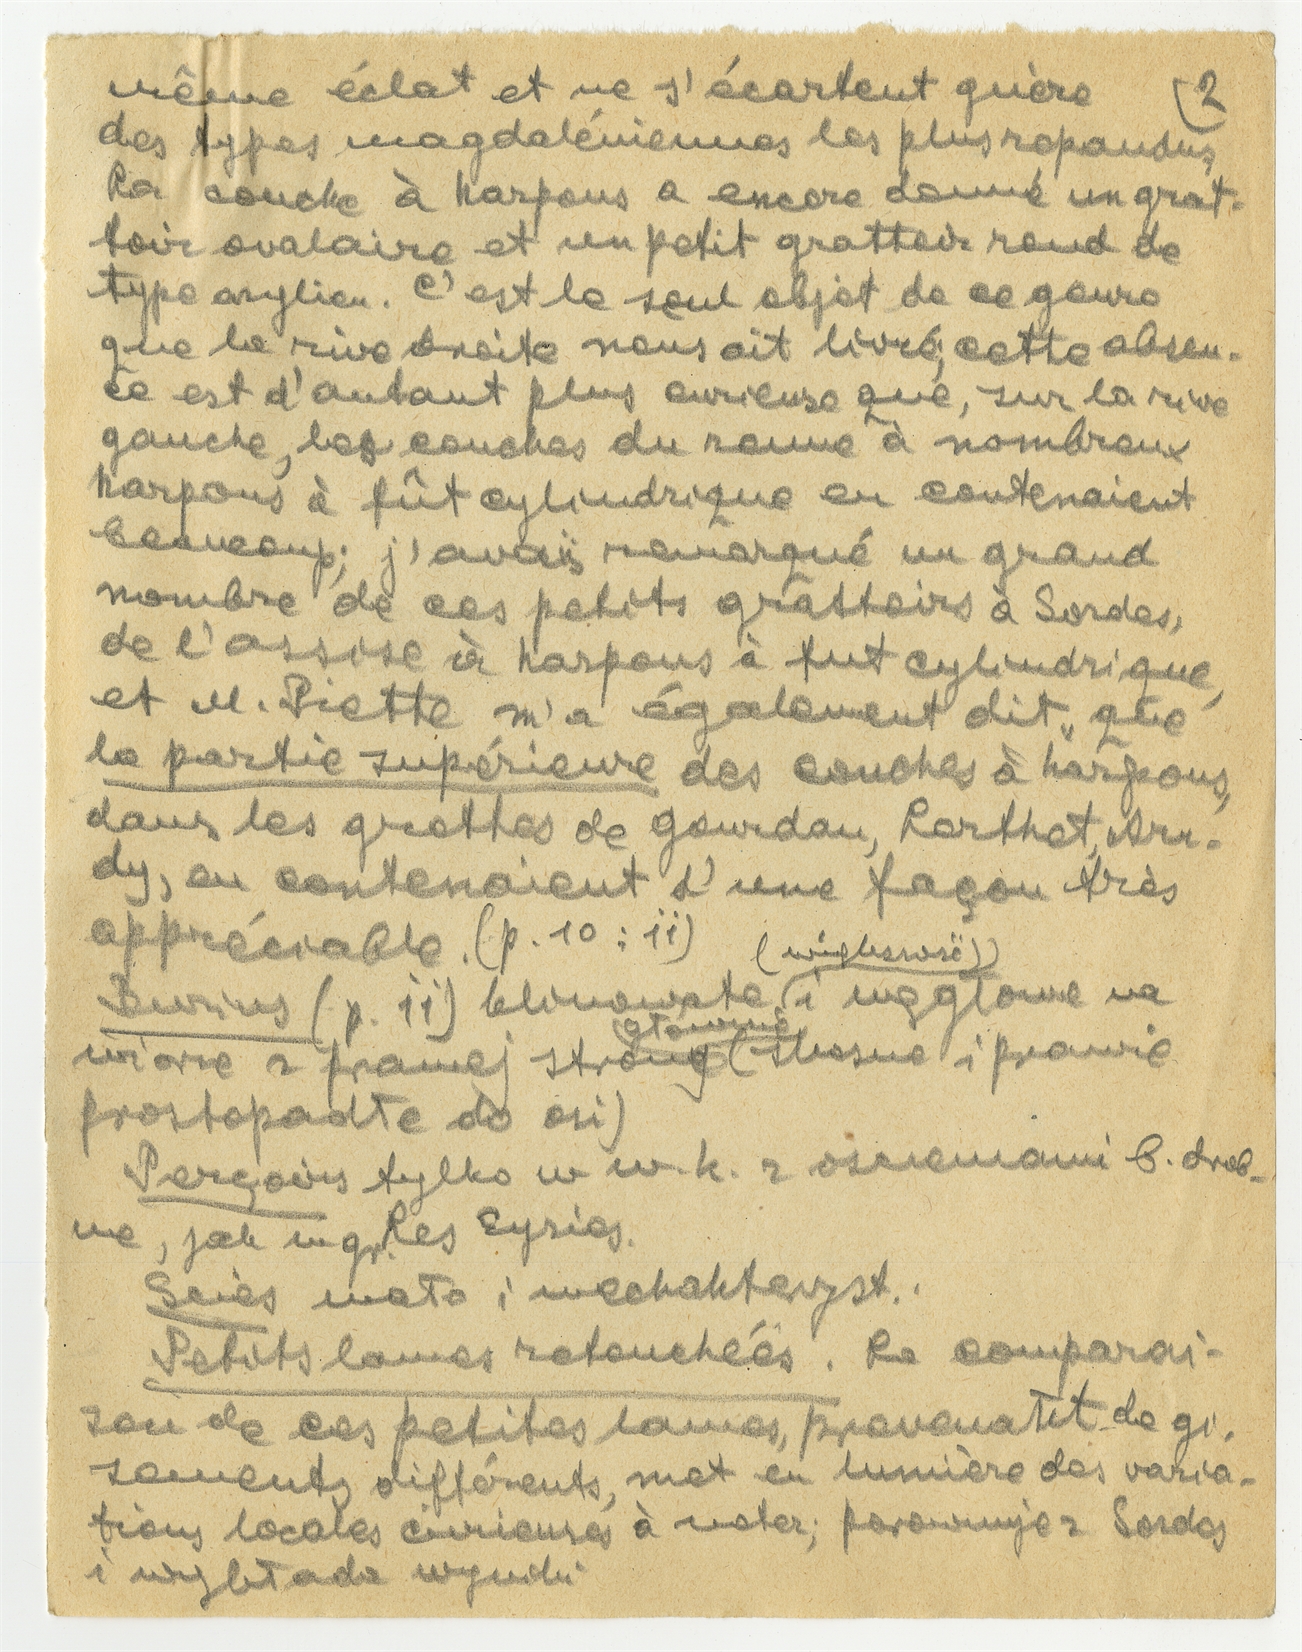 (2
même éclat et ne s'écartent guère
des types magdaléniennes les plus répandus,
La couche à harpons a encore donné un grat-
toir ovalaire et un petit grattoir rond de
type asylien. C'est le seul objet de ce genre
que la rive droite nous ait livré; cette absen-
ce est d'autant plus curieuse que, sur la rive
gauche, les couches du renne à nombreux
harpons à fût cylindrique en contenaient
beaucoup; j'avais remarqué un grand
nombre de ces petits grattoirs à Sordes,
de l'assise à harpons à fut cylindrique,
et M. Piette m'a également dit „ que
la partie supérieure des couches à harpons,
dans les grottes de Gourdan, Lorthet, Aru-
dy, en contenaient d'une façon très
appréciable. (p. 10 : ii)
(większość)
Burins (p. ii) klinowate i węgłowe na
głównie
wiórze z prawej strony (skośne i prawie
prostopadłe do osi)
Perçoirs tylko w w. k. z ostrzami b. drob-
ne, jak w gr. Les Eyzies.
Scies mało i niecharakteryst.
Petits lames retouchées. La comparai-
son de ces petites lames, provenant de gi-
sements différents, met en lumière des varia-
tions locales curieuses à noter; porównuje z Sordes
i wykłada wyniki